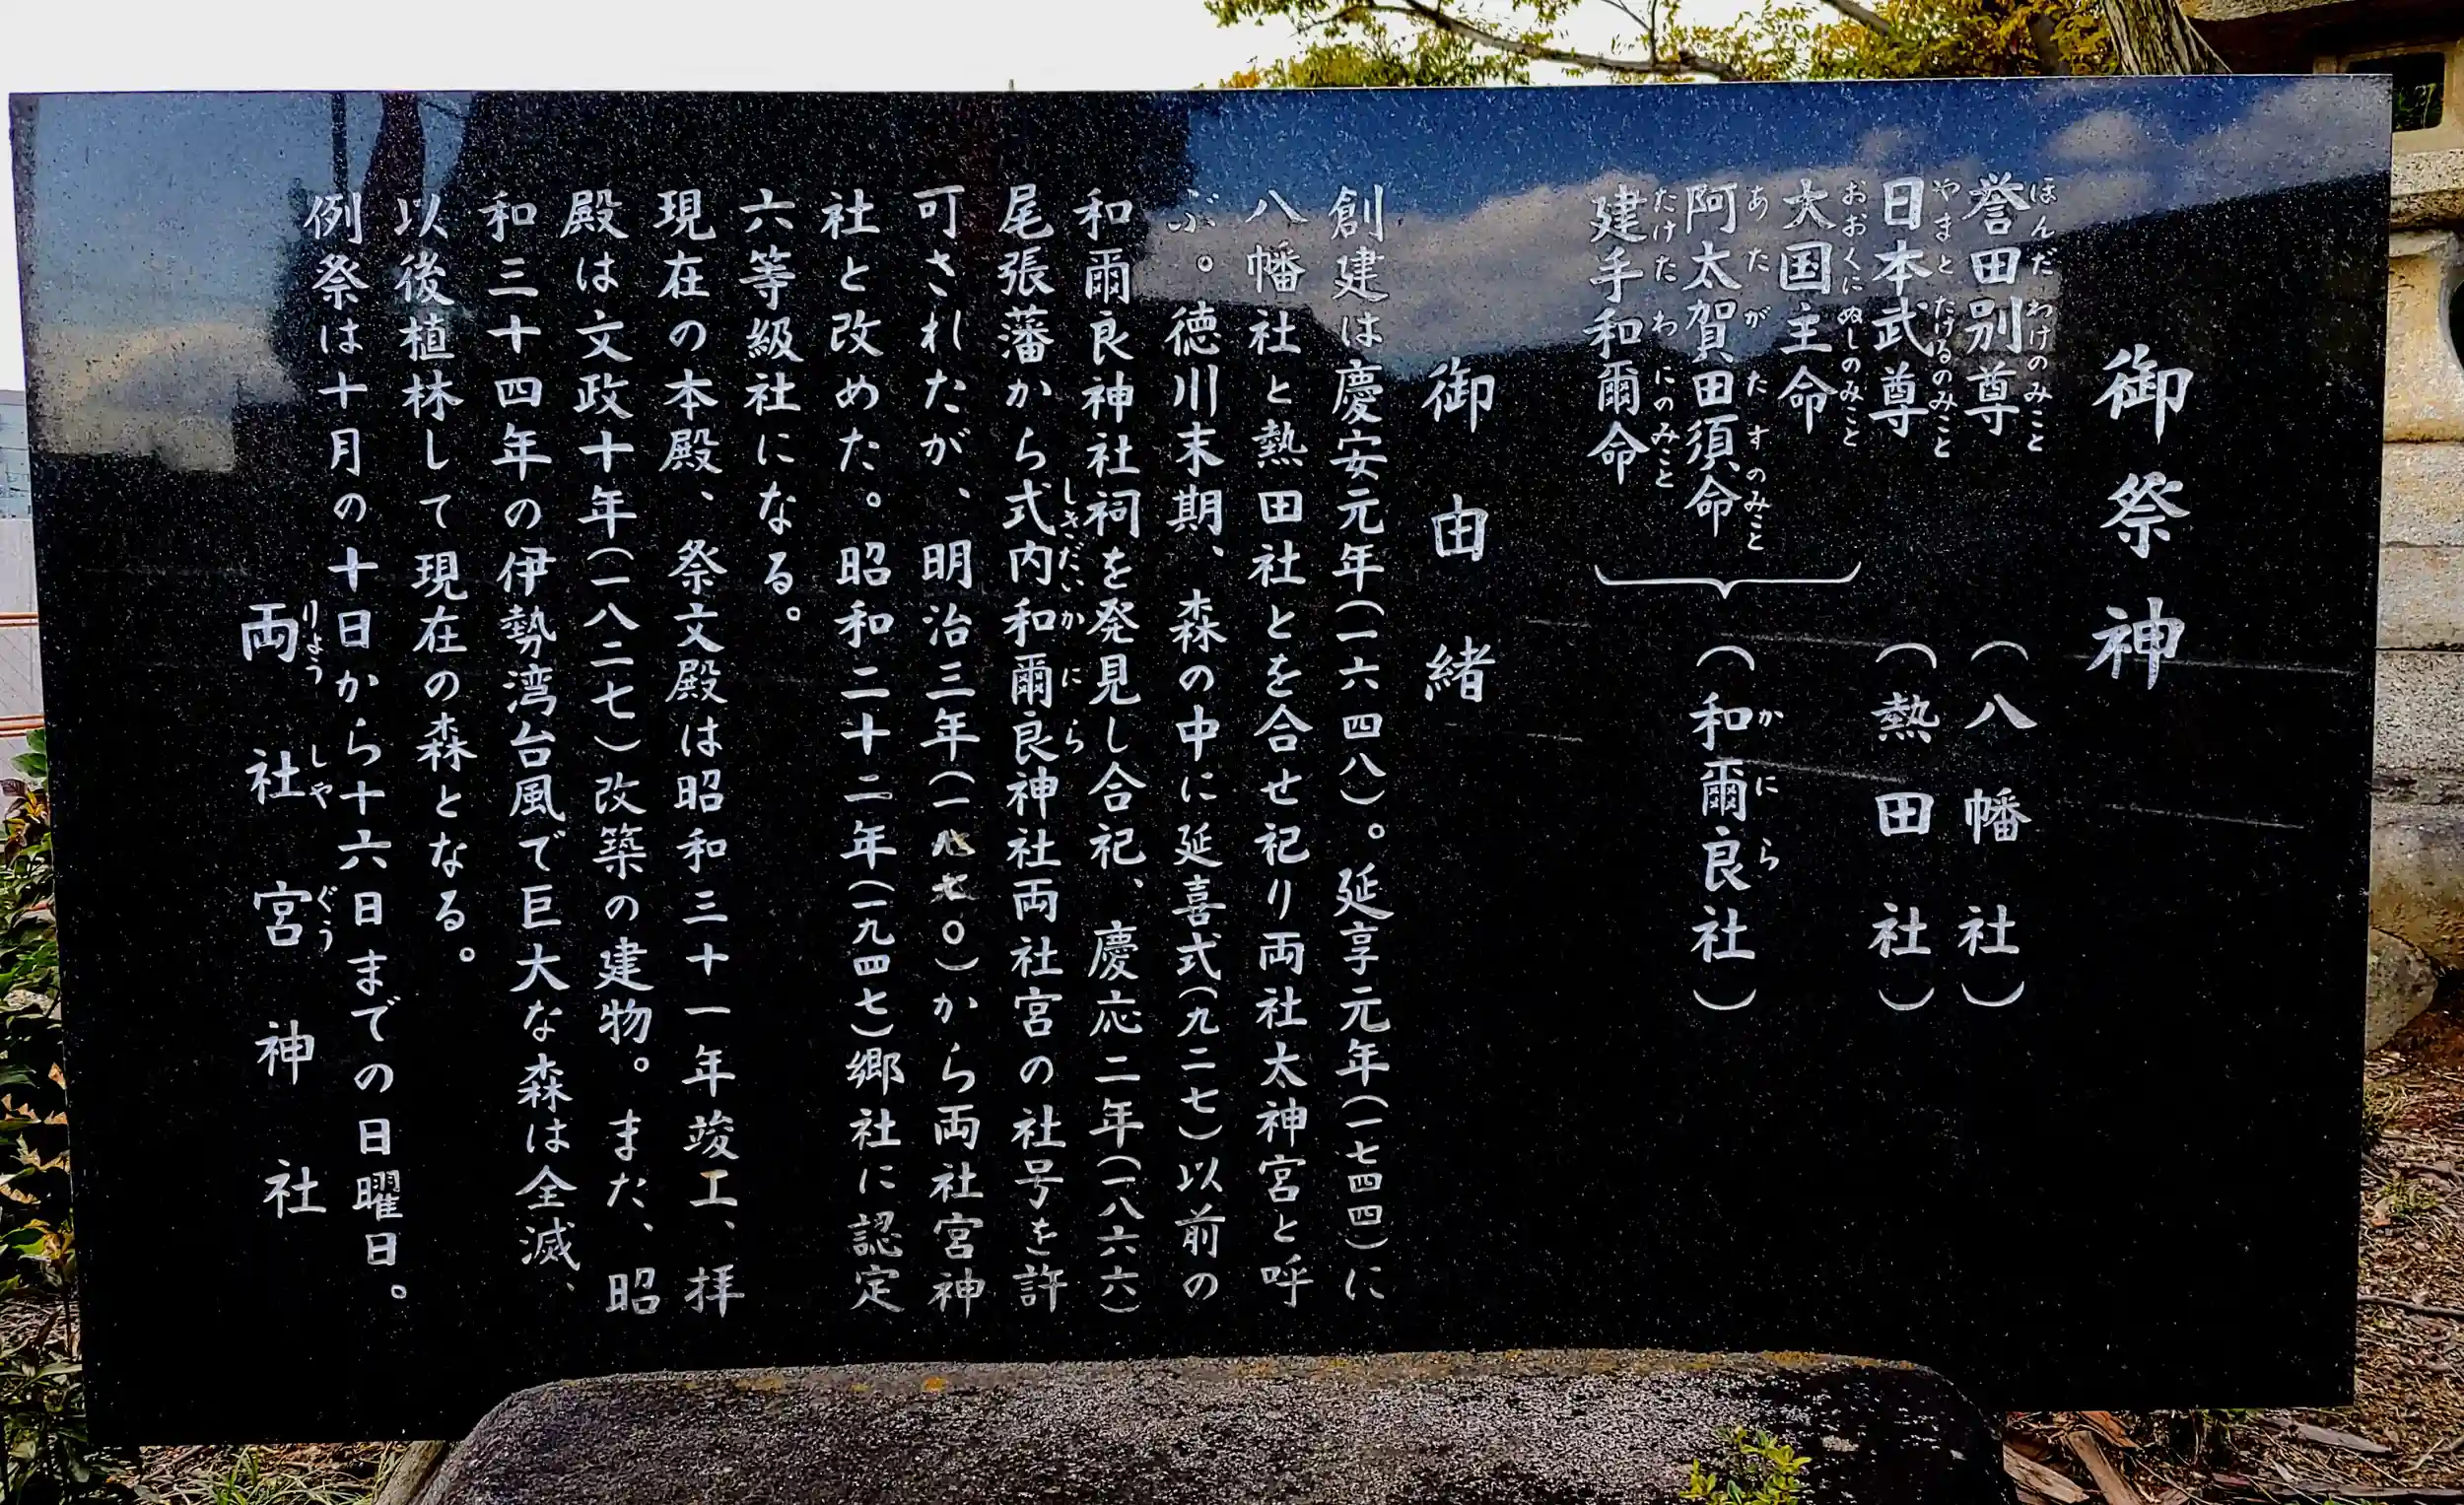 御祭神
誉田別尊 (八幡社)
ほんだわけのみこと
日本武尊 (熱田社)
やまとたけるのみこと
大国主命
おおくにぬしのみこと
阿太賀田須命 (和爾良社)
あたがたすのみこと かにら
建手和爾命
たけたわにのみこと
御由緒
創建は慶安元年(一六四八)。延享元年(一七四四)に
八幡社と熱田社とを合せ祀り両社太神宮と呼
ぶ。徳川末期、森の中に延喜式(九二七)以前の
和爾良神社祠を発見し合祀、慶応二年(一八六六)
尾張藩から式内和爾良神社両社宮の社号を許
しきだいかにら
可されたが、明治三年(一八七〇)から両社宮神
社と改めた。昭和二十二年(一九四七)郷社に認定
六等級社になる。
現在の本殿、祭文殿は昭和三十一年竣工、拝
殿は文政十年(一八二七)改築の建物。また、昭
和三十四年の伊勢湾台風で巨大な森は全滅、
以後植林して現在の森となる。
例祭は十月の十日から十六日までの日曜日。
両社宮神社
りょうしゃぐう